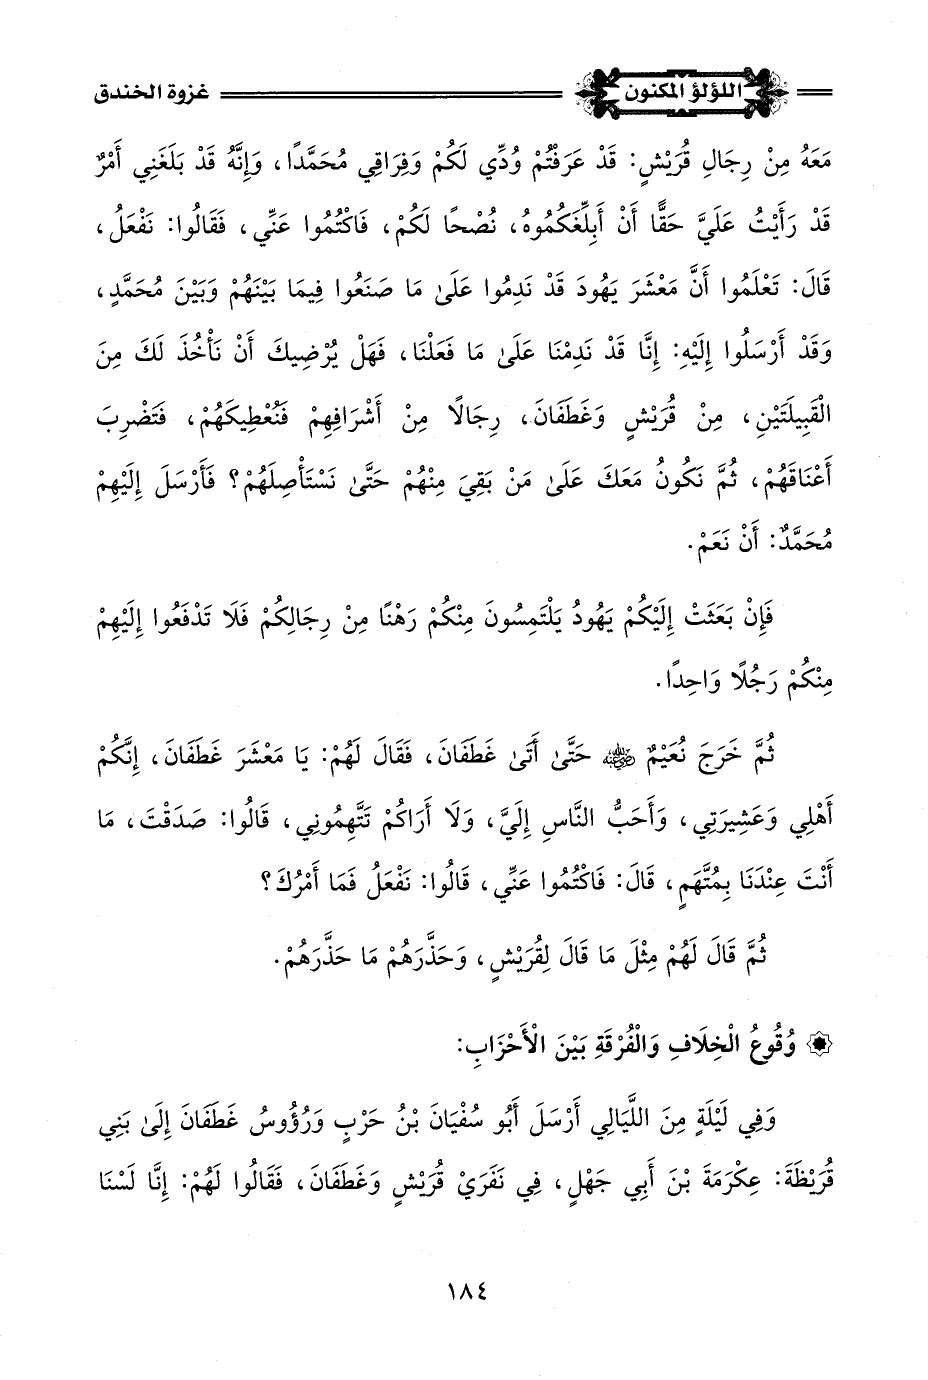 اللؤلؤ المكنون غزوة الخندق
مَعَهُ مِنْ رِجَالِ قُرَيْشٍ: قَدْ عَرَفْتُمْ وُدِّي لَكُمْ وَفِرَاقِي مُحَمَّدًا، وَإِنَّهُ قَدْ بَلَغَنِي أَمْرٌ
قَدْ رَأَيْتُ عَلَيَّ حَقًّا أَنْ أُبَلِّغَكُمُوهُ، نُصْحًا لَكُمْ، فَاكْتُمُوا عَنِّي، فَقَالُوا: نَفْعَلُ،
قَالَ: تَعْلَمُوا أَنَّ مَعْشَرَ يَهُودَ قَدْ نَدِمُوا عَلَىٰ مَا صَنَعُوا فِيمَا بَيْنَهُمْ وَبَيْنَ مُحَمَّدٍ،
وَقَدْ أَرْسَلُوا إِلَيْهِ: إِنَّا قَدْ نَدِمْنَا عَلَىٰ مَا فَعَلْنَا، فَهَلْ يُرْضِيكَ أَنْ نَأْخُذَ لَكَ مِنَ
الْقَبِيلَتَيْنِ، مِنْ قُرَيْشٍ وَغَطَفَانَ، رِجَالًا مِنْ أَشْرَافِهِمْ فَنُعْطِيكَهُمْ، فَتَضْرِبَ
أَعْنَاقَهُمْ، ثُمَّ نَكُونُ مَعَكَ عَلَىٰ مَنْ بَقِيَ مِنْهُمْ حَتَّىٰ نَسْتَأْصِلَهُمْ؟ فَأَرْسَلَ إِلَيْهِمْ
مُحَمَّدٌ: أَنْ نَعَمْ.
فَإِنْ بَعَثَتْ إِلَيْكُمْ يَهُودُ يَلْتَمِسُونَ مِنْكُمْ رَهْنًا مِنْ رِجَالِكُمْ فَلَا تَدْفَعُوا إِلَيْهِمْ
مِنْكُمْ رَجُلًا وَاحِدًا.
ثُمَّ خَرَجَ نُعَيْمٌ رضي الله عنه حَتَّىٰ أَتَىٰ غَطَفَانَ، فَقَالَ لَهُمْ: يَا مَعْشَرَ غَطَفَانَ، إِنَّكُمْ
أَهْلِي وَعَشِيرَتِي، وَأَحَبُّ النَّاسِ إِلَيَّ، وَلَا أَرَاكُمْ تَتَّهِمُونِي، قَالُوا: صَدَقْتَ، مَا
أَنْتَ عِنْدَنَا بِمُتَّهَمٍ، قَالَ: فَاكْتُمُوا عَنِّي، قَالُوا: نَفْعَلُ فَمَا أَمْرُكَ؟
ثُمَّ قَالَ لَهُمْ مِثْلَ مَا قَالَ لِقُرَيْشٍ، وَحَذَّرَهُمْ مَا حَذَّرَهُمْ.
وُقُوعُ الْخِلَافِ وَالْفُرْقَةِ بَيْنَ الْأَحْزَابِ:
وَفِي لَيْلَةٍ مِنَ اللَّيَالِي أَرْسَلَ أَبُو سُفْيَانَ بْنُ حَرْبٍ وَرُؤُوسُ غَطَفَانَ إِلَىٰ بَنِي
قُرَيْظَةَ: عِكْرَمَةَ بْنَ أَبِي جَهْلٍ، فِي نَفَرَيْ قُرَيْشٍ وَغَطَفَانَ، فَقَالُوا لَهُمْ: إِنَّا لَسْنَا
١٨٤